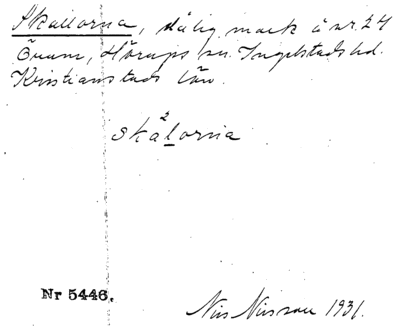 Skallorna, dålig mark å nr. 24
Örum, Hörups sn. Ingelstads hd.
Kristianstads län.
skälorna
Nr 5446.
Nils Nilsson 1931.